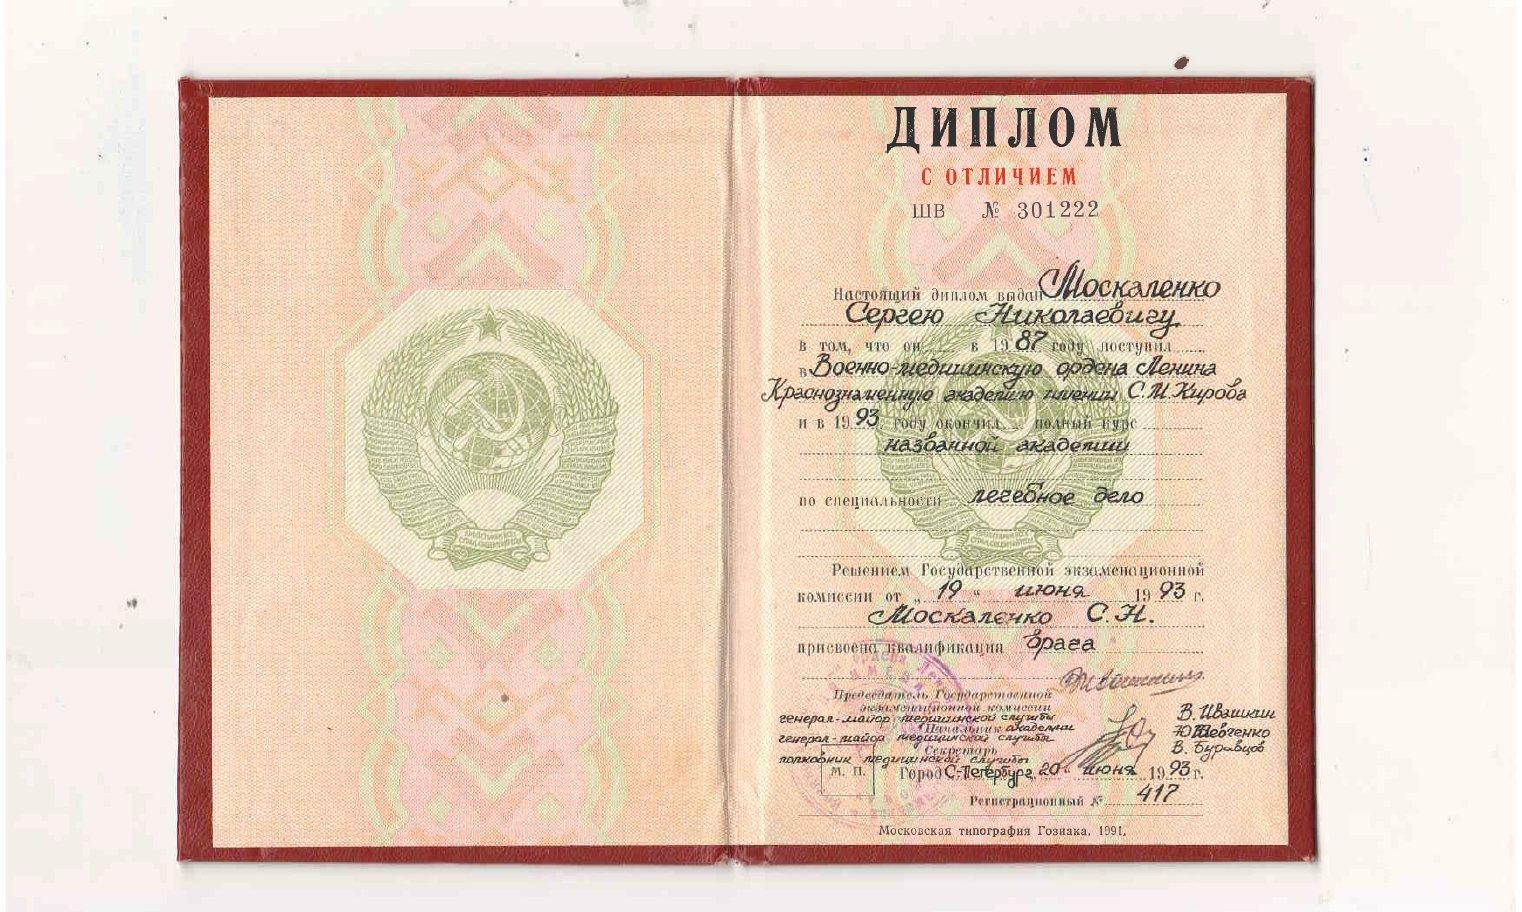 ДИПЛОМ
С ОТЛИЧИЕМ
ШВ № 301222
Настоящий диплом выдан Москаленко
Сергею Николаевичу
в том, что он в 1987 году поступил
в Военно-медицинскую ордена Ленина
Краснознаменную академию имени С.М.Кирова
и в 1993 году окончил полный курс
названной академии
по специальности лечебное дело
Решением Государственной экзаменационной
комиссии от „19“ июня 1993 г.
Москаленко С.Н.
присвоена квалификация врача
Председатель Государственной
экзаменационной комиссии
генерал-майор медицинской службы В. Ивашкин
Начальник академии
генерал-майор медицинской службы Ю. Шевченко
Секретарь
полковник медицинской службы В. Буравцов
М. П.
Город С-Петербург „20“ июня 1993 г.
Регистрационный № 417
Московская типография Гознака. 1991.